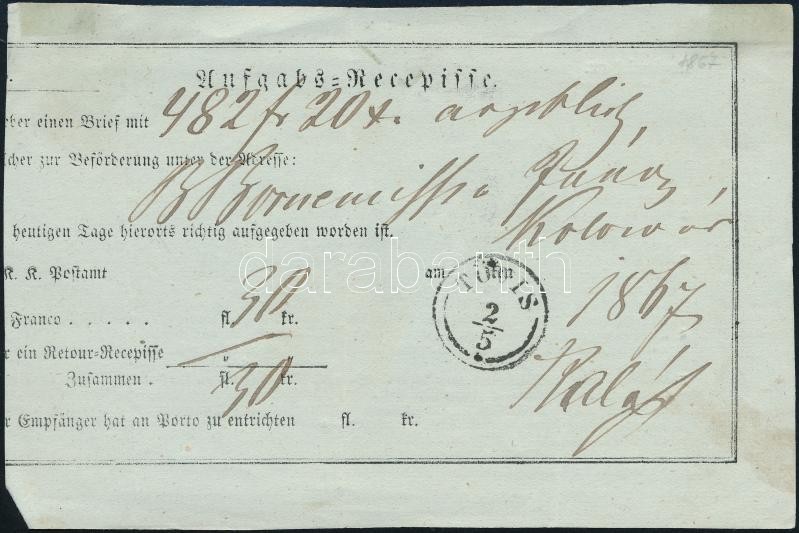 1867
Aufgabs-Recepisse.
eber einen Brief mit 482 fr 20 x. angeblich,
lcher zur Beförderung unter der Adresse:
B Bornemissza János,
heutigen Tage hierorts richtig aufgegeben worden ist. Kolosvár
K. K. Postamt am ten 1867
TÖVIS
2/5
Franco . . . . . fl. 30 kr.
r ein Retour-Recepisse " "
Zusammen . fl. 30 kr.
r Empfänger hat an Porto zu entrichten fl. kr.
darabanth